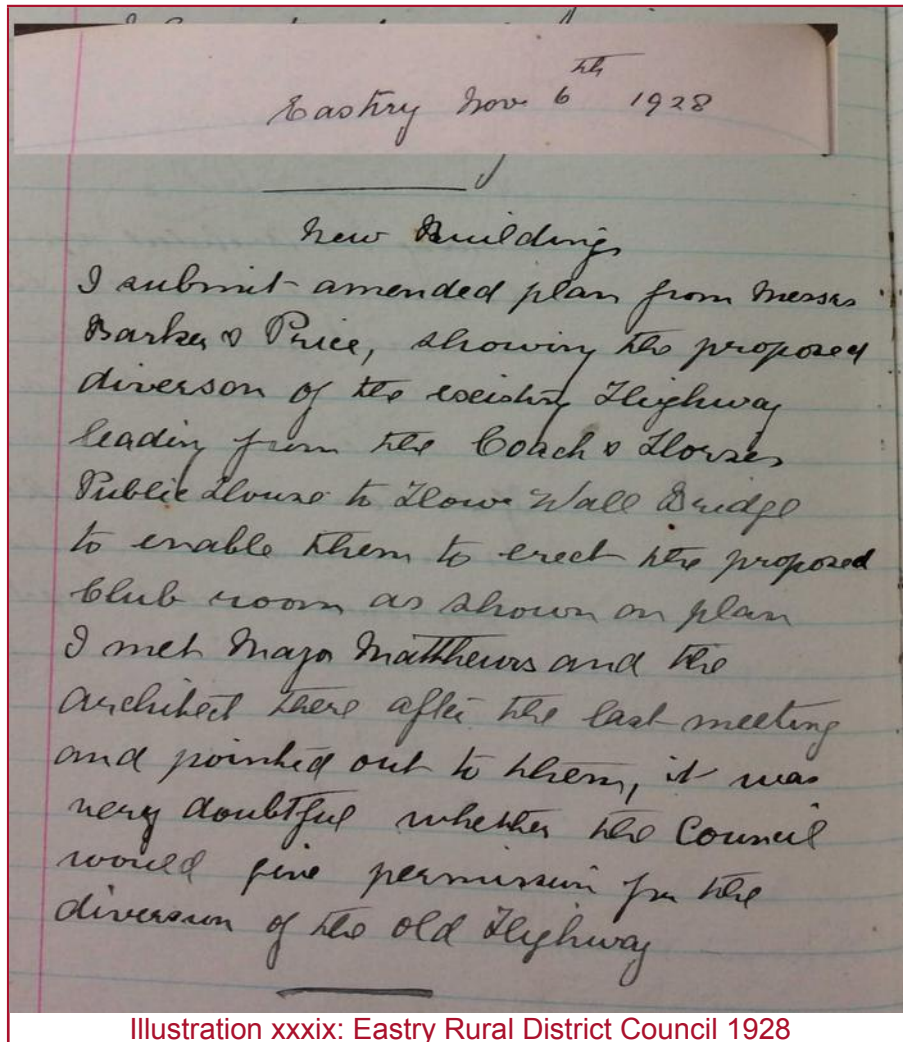 Eastry Nov 6th 1928
New Buildings
I submit amended plan from Messrs
Barker & Price, showing the proposed
diverson of the existing Highway
leading from the Coach & Horses
Public House to Howe Wall Bridge
to enable them to erect the proposed
Club room as shown on plan
I met Major Matthews and the
architect there after the last meeting
and pointed out to them, it was
very doubtful whether the Council
would give permission for the
diversion of the old Highway
Illustration xxxix: Eastry Rural District Council 1928